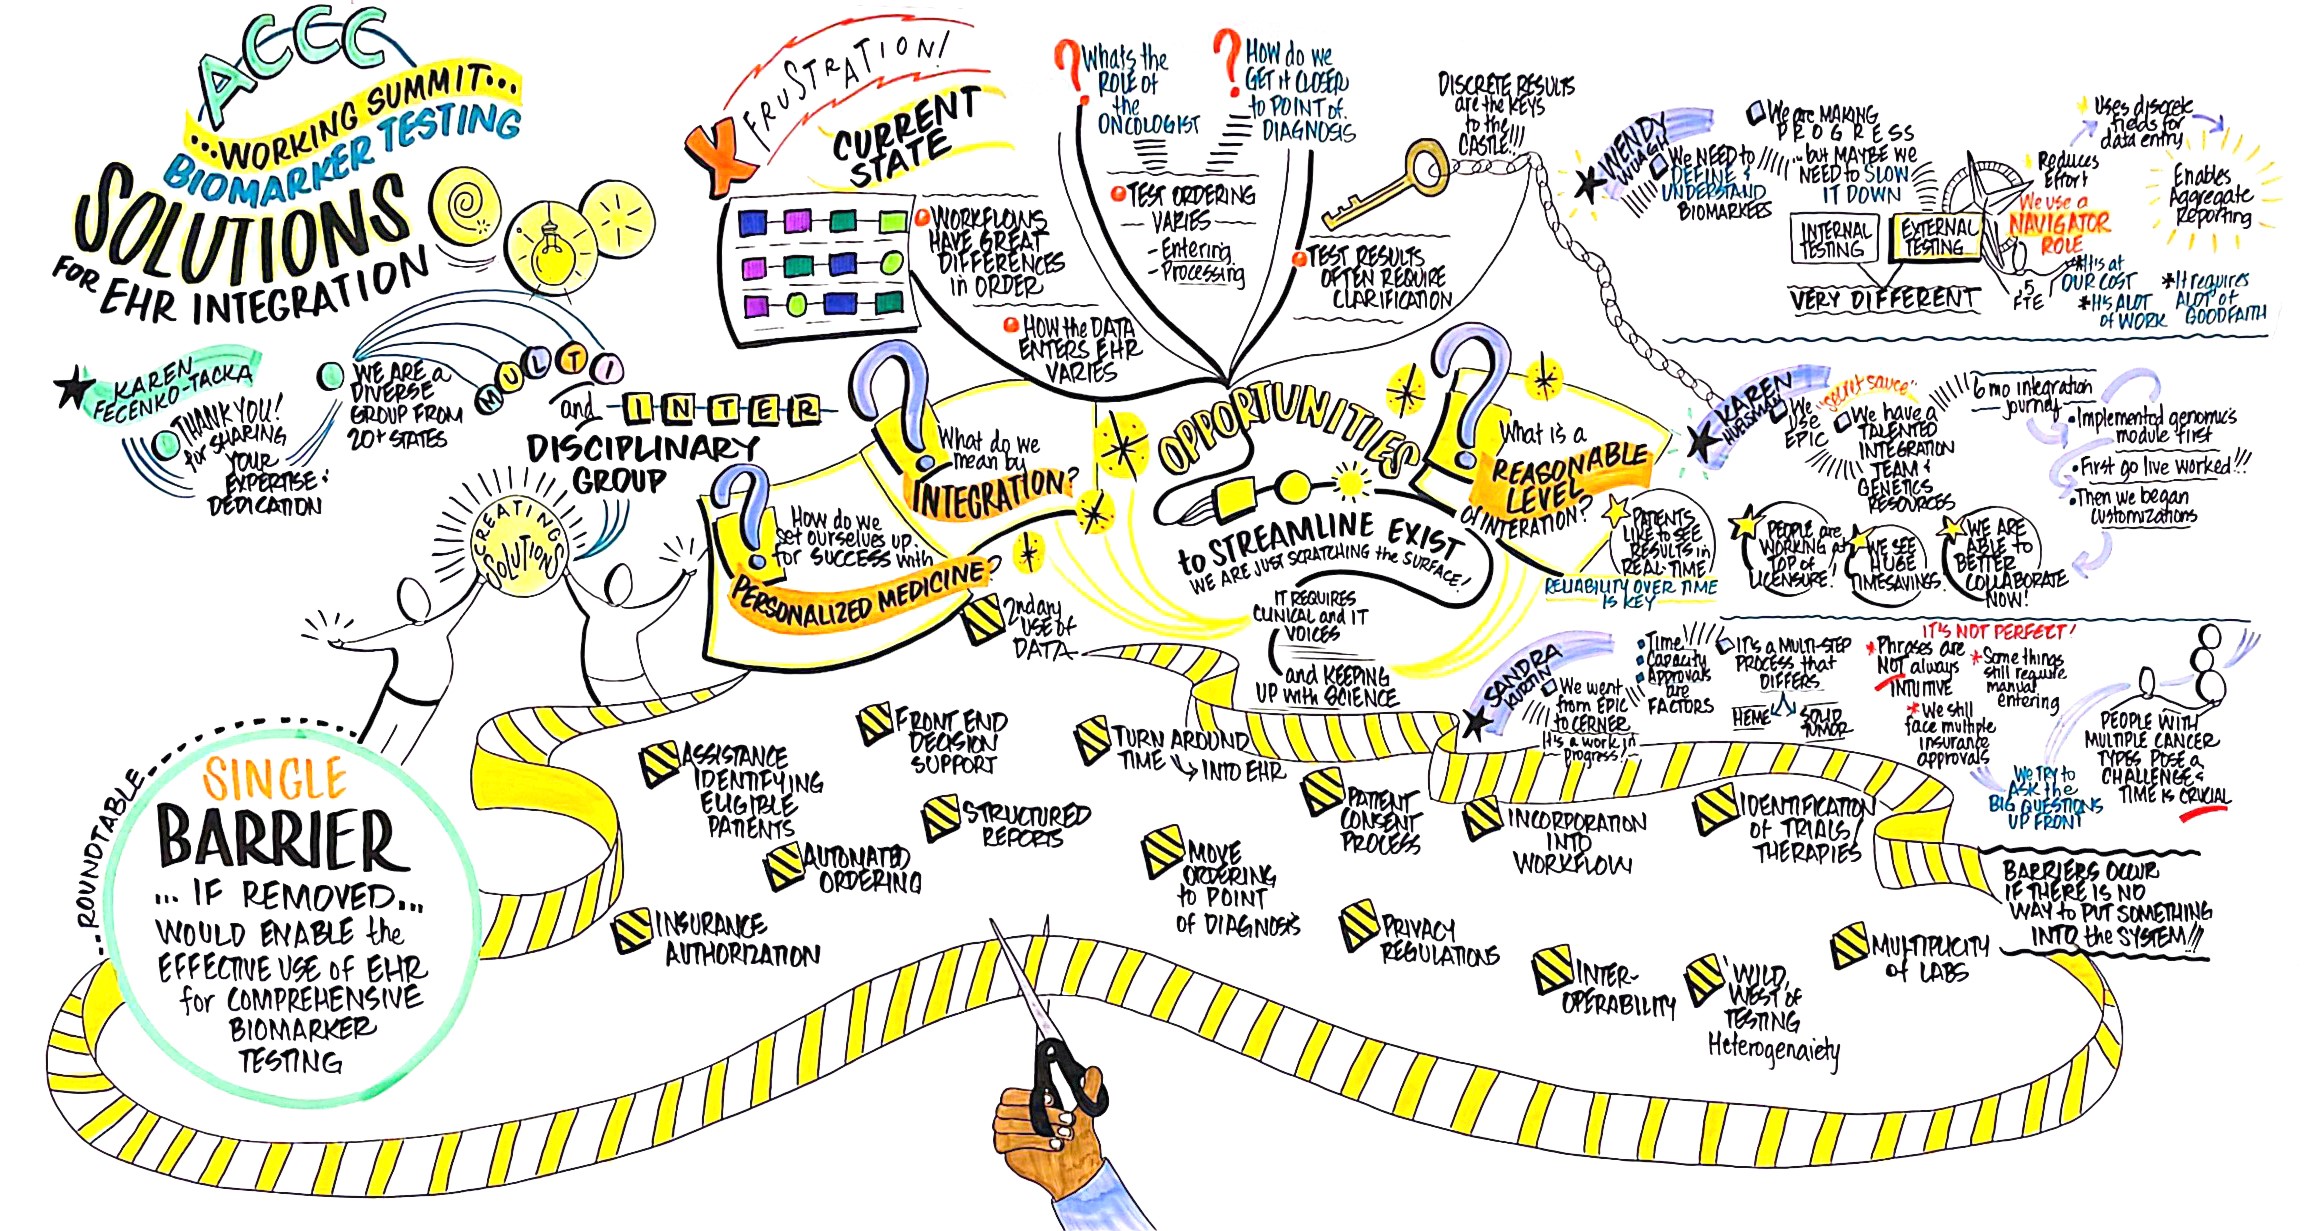 ACCC
...WORKING SUMMIT...
BIOMARKER TESTING
SOLUTIONS
FOR EHR INTEGRATION
KAREN
FECENKO-TACKA
THANK YOU!
for SHARING
YOUR
EXPERTISE &
DEDICATION
WE ARE a
DIVERSE
GROUP FROM
20+ STATES
MULTI
and INTER
DISCIPLINARY
GROUP
CREATING
SOLUTIONS
X FRUSTRATION!
CURRENT
STATE
WORKFLOWS
HAVE GREAT
DIFFERENCES
in ORDER
HOW the DATA
ENTERS EHR
VARIES
? What's the
ROLE of
the
ONCOLOGIST
TEST ORDERING
VARIES
- Entering
- Processing
? HOW do we
GET it CLOSER
to POINT of
DIAGNOSIS
TEST RESULTS
OFTEN REQUIRE
CLARIFICATION
DISCRETE RESULTS
are the KEYS
to the
CASTLE!!!
? What do we
mean by
INTEGRATION?
? How do we
set ourselves up
for SUCCESS with
PERSONALIZED MEDICINE?
OPPORTUNITIES
to STREAMLINE EXIST
WE ARE JUST SCRATCHING the SURFACE!
IT REQUIRES
CLINICAL and IT
VOICES
and KEEPING
UP with SCIENCE
? What is a
REASONABLE
LEVEL
of INTERATION?
WENDY
WAUGH
We NEED to
DEFINE &
UNDERSTAND
BIOMARKERS
We are MAKING
PROGRESS
...but MAYBE WE
NEED to SLOW
IT DOWN
INTERNAL
TESTING
EXTERNAL
TESTING
VERY DIFFERENT
We use a
NAVIGATOR
ROLE
.5
FTE
Reduces
Effort
Uses discrete
fields for
data entry
Enables
Aggregate
Reporting
*It's at
OUR COST
*It's ALOT
of WORK
*It requires
ALOT of
GOOD FAITH
KAREN
HUELSMAN
We
USE
EPIC
"secret sauce"
We have a
TALENTED
INTEGRATION
TEAM &
GENETICS
RESOURCES
6 mo integration
journey
• Implemented genomics
module first
• First go live worked!!!
• Then we began
customizations
PATIENTS
LIKE to SEE
RESULTS in
REAL-TIME
RELIABILITY OVER TIME
IS KEY
PEOPLE are
WORKING at
TOP of
LICENSURE!
WE SEE
HUGE
TIMESAVINGS
WE ARE
ABLE to
BETTER
COLLABORATE
NOW!
SANDRA
KURTIN
We went
from EPIC
to CERNER
It's a work in
progress!
Time
Capacity
Approvals
are
FACTORS
IT'S a MULTI-STEP
PROCESS that
DIFFERS
HEME
SOLID
TUMOR
IT'S NOT PERFECT!
*Phrases are
NOT always
INTUITIVE
*Some things
still require
manual
entering
*We still
face multiple
insurance
approvals
We TRY to
ASK the
BIG QUESTIONS
UP FRONT
PEOPLE WITH
MULTIPLE CANCER
TYPES POSE a
CHALLENGE &
TIME IS CRUCIAL
...ROUNDTABLE...
SINGLE
BARRIER
... IF REMOVED...
WOULD ENABLE the
EFFECTIVE USE of EHR
for COMPREHENSIVE
BIOMARKER
TESTING
2ndary
USE of
DATA
ASSISTANCE
IDENTIFYING
ELIGIBLE
PATIENTS
FRONT END
DECISION
SUPPORT
TURN AROUND
TIME INTO EHR
STRUCTURED
REPORTS
AUTOMATED
ORDERING
INSURANCE
AUTHORIZATION
MOVE
ORDERING
to POINT
of DIAGNOSIS
PATIENT
CONSENT
PROCESS
INCORPORATION
INTO
WORKFLOW
IDENTIFICATION
of TRIALS/
THERAPIES
PRIVACY
REGULATIONS
INTER-
OPERABILITY
'WILD,
WEST of
TESTING
Heterogenaiety
MULTIPLICITY
of LABS
BARRIERS OCCUR
IF THERE IS NO
WAY to PUT SOMETHING
INTO the SYSTEM!!!